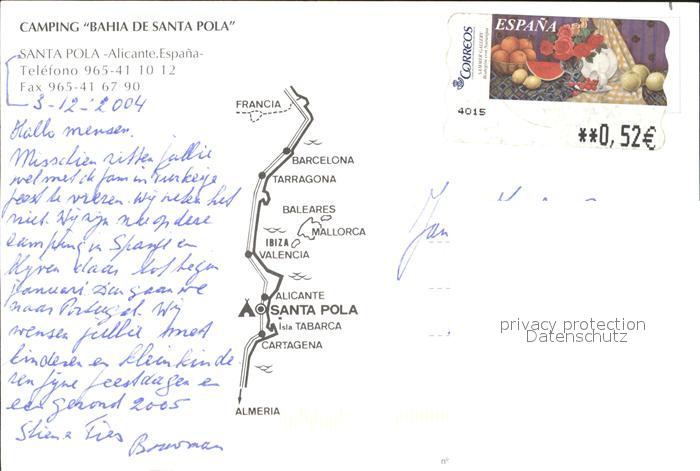 CAMPING "BAHIA DE SANTA POLA"
SANTA POLA -Alicante.España-
Teléfono 965-41 10 12
Fax 965-41 67 90
3-12-'2004
Hallo mensen.
Misschien zitten jullie
wel met de fam in Turkeije
feest te vieren. Wij weten het
niet. Wij zijn nu op deze
camping in Spanje en
blyven daar tot begin
januari dan gaan we
naar Portugal. Wij
wensen jullie met
kinderen en kleinkinde
ren fijne feestdagen en
een gezond 2005
Stien & Ties
Bouwman
FRANCIA
BARCELONA
TARRAGONA
BALEARES
MALLORCA
IBIZA
VALENCIA
ALICANTE
SANTA POLA
Isla TABARCA
CARTAGENA
ALMERIA
CORREOS
ESPAÑA
4015
**0,52€
Jan
privacy protection
Datenschutz
nº